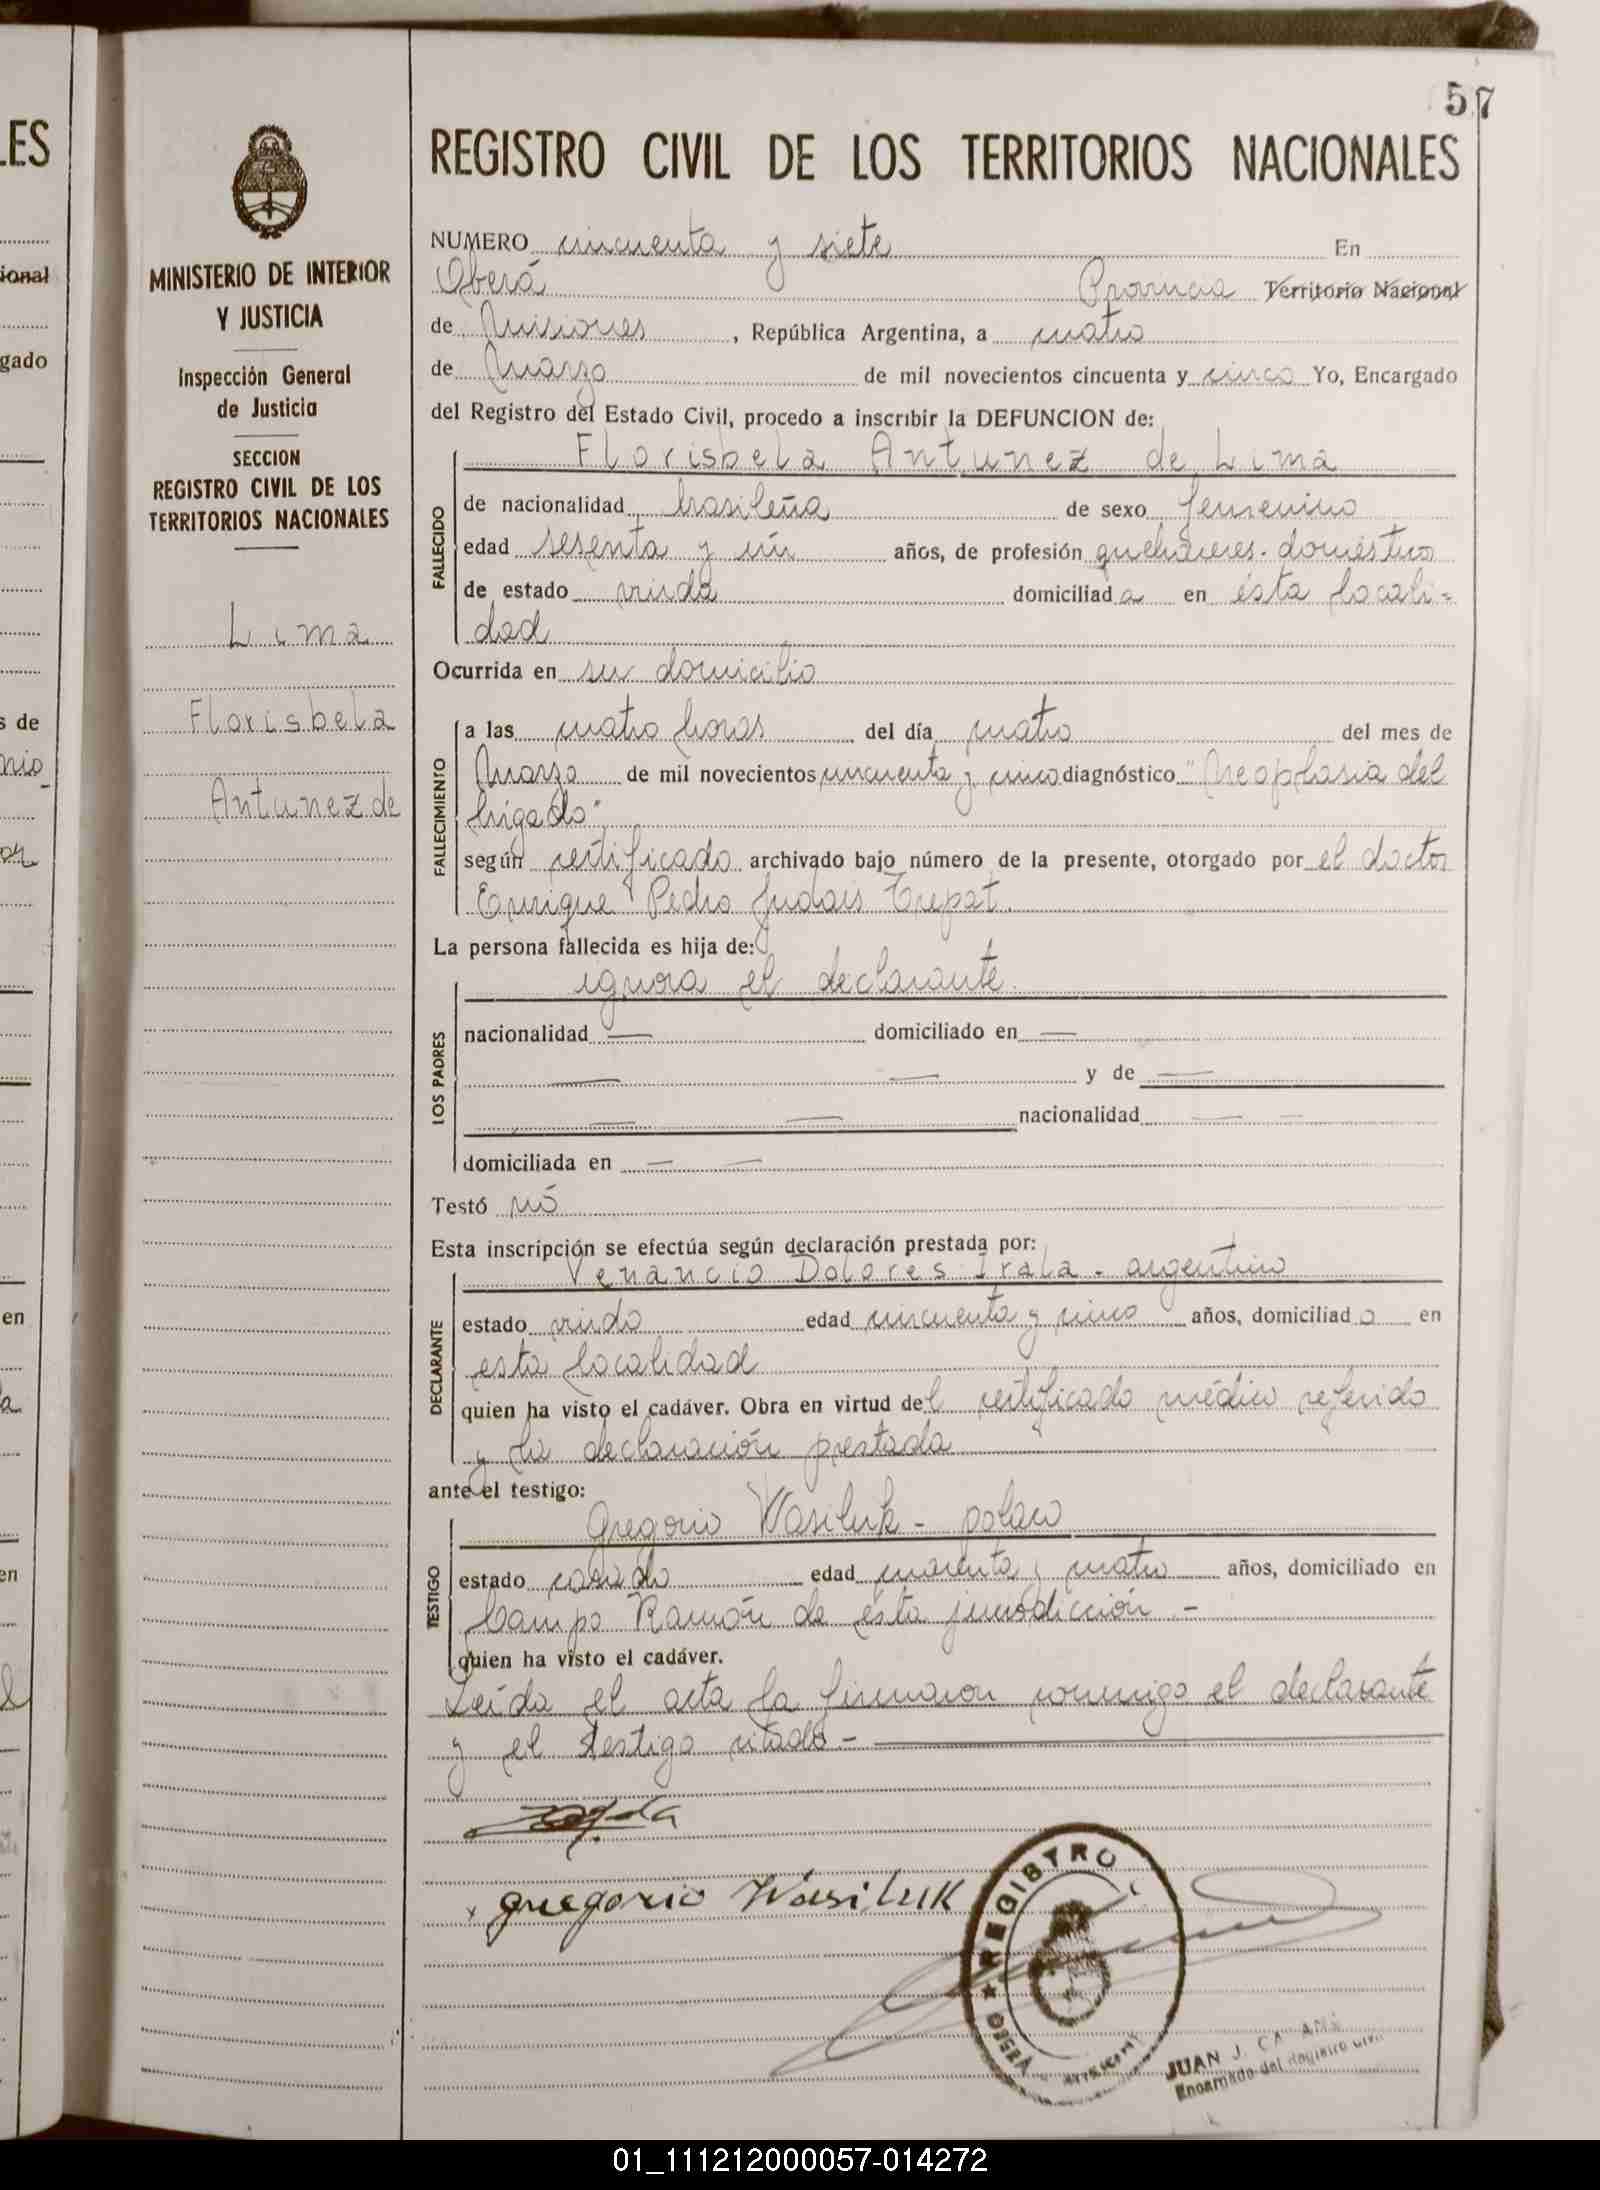 57
REGISTRO CIVIL DE LOS TERRITORIOS NACIONALES
MINISTERIO DE INTERIOR
Y JUSTICIA
Inspección General
de Justicia
SECCION
REGISTRO CIVIL DE LOS
TERRITORIOS NACIONALES
Lima
Florisbela
Antunez de
NUMERO cincuenta y siete En
Oberá Provincia Territorio Nacional
de Misiones, República Argentina, a cuatro
de Marzo de mil novecientos cincuenta y cinco Yo, Encargado
del Registro del Estado Civil, procedo a inscribir la DEFUNCION de:
FALLECIDO
Florisbela Antunez de Lima
de nacionalidad brasileña de sexo femenino
edad sesenta y un años, de profesión quehaceres domestico
de estado viuda domiciliada en ésta locali=
dad
Ocurrida en su domicilio
FALLECIMIENTO
a las cuatro horas del día cuatro del mes de
Marzo de mil novecientos cincuenta y cinco diagnóstico "Neoplasia del
higado"
según certificado archivado bajo número de la presente, otorgado por el doctor
Enrique Pedro Trepat.
La persona fallecida es hija de:
LOS PADRES
ignora el declarante.
nacionalidad — domiciliado en —
— — y de —
— — nacionalidad — —
domiciliada en — —
Testó nó
Esta inscripción se efectúa según declaración prestada por:
DECLARANTE
Venancio Dolores Irala - argentino
estado viudo edad cincuenta y cinco años, domiciliado en
esta localidad
quien ha visto el cadáver. Obra en virtud del certificado médico referido
y la declaración prestada
ante el testigo:
TESTIGO
Gregorio Wasiluk - polaco
estado casado edad cuarenta y cuatro años, domiciliado en
Campo Ramón de ésta jurisdicción.-
quien ha visto el cadáver.
Leída el acta la firmaron conmigo el declarante
y el testigo citado -
gregorio Wasiluk
REGISTRO
OBERÁ
JUAN J.
Encargado del Registro Civil
ES
ional
gado
s de
en
en
01_111212000057-014272